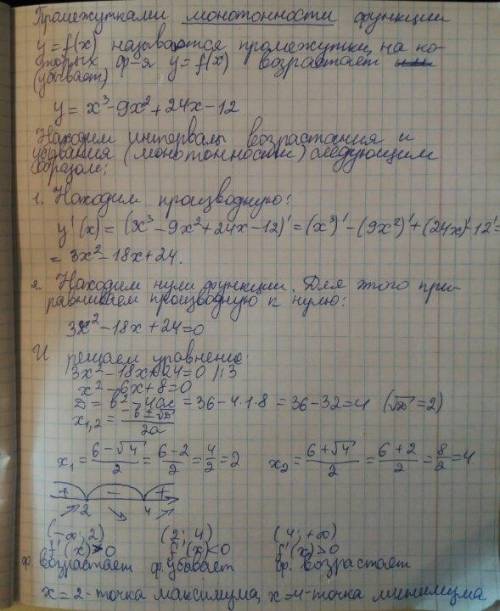 Промежутками монотонности функции
y=f(x) называются промежутки, на ко-
торых ф-я y=f(x) возрастает
(убывает)
y = x³-9x²+24x-12
Находим интервалы возрастания и
убывания (монотонности) следующим
образом:
1. Находим производную:
y'(x) = (x³-9x²+24x-12)' = (x³)' - (9x²)' + (24x)' - 12' =
= 3x²-18x+24.
2. Находим нули функции. Для этого при-
равниваем производную к нулю:
3x²-18x+24=0
И решаем уравнение
3x²-18x+24=0 /:3
x²-6x+8=0
D = b²-4ac = 36-4·1·8 = 36-32=4 (√D=2)
x₁,₂ = (b±√D)/2a
x₁ = (6-√4)/2 = (6-2)/2 = 4/2 = 2 x₂ = (6+√4)/2 = (6+2)/2 = 8/2 = 4
+ - +
2 4
(-∞; 2) (2; 4) (4; +∞)
f'(x)>0 f'(x)<0 f'(x)>0
ф. возрастает ф. убывает ф. возрастает
x=2-точка максимума, x=4-точка минимума